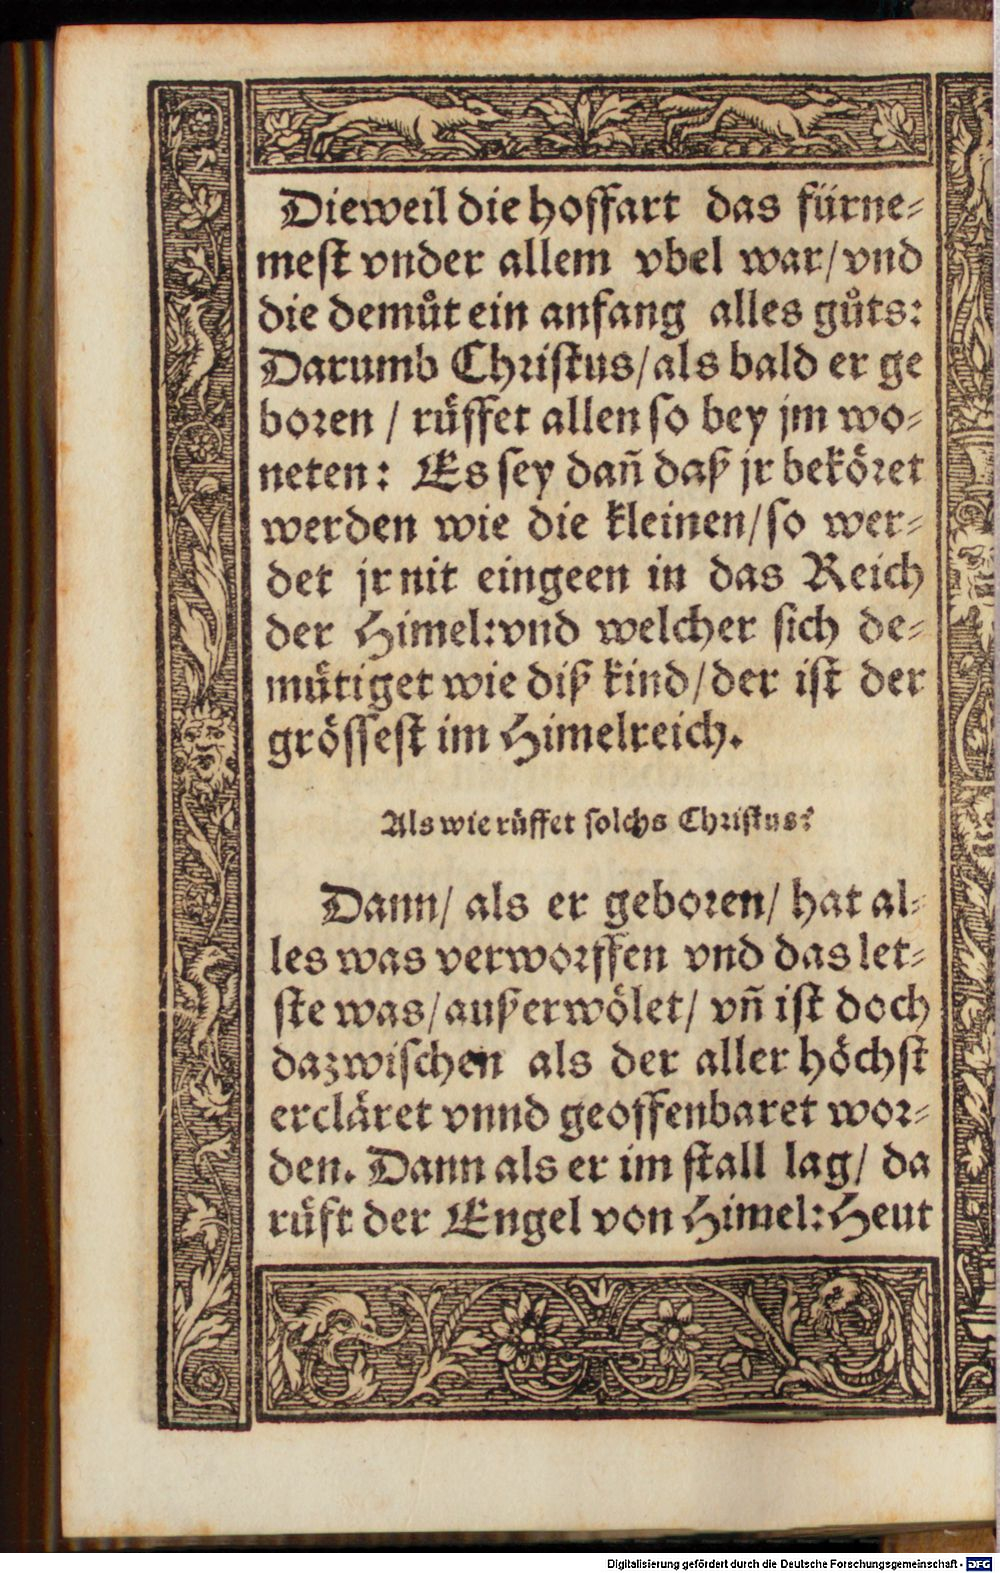 Dieweil die hoffart das fürne-
mest vnder allem vbel war/ vnd
die demuͦt ein anfang alles guͦts:
Darumb Christus/ als bald er ge
boren / ruͤffet allen so bey jm wo-
neten: Es sey dañ daß jr beköret
werden wie die kleinen/ so wer-
det jr nit eingeen in das Reich
der Himel: vnd welcher sich de-
muͤtiget wie diß kind/ der ist der
grössest im Himelreich.
Als wie ruͤffet solchs Christus?
Dann/ als er geboren/ hat al-
les was verworffen vnd das let-
ste was/ außerwölet/ vñ ist doch
dazwischen als der aller höchst
ercläret vnnd geoffenbaret wor-
den. Dann als er im stall lag/ da
ruͤft der Engel von Himel: Heut
Digitalisierung gefördert durch die Deutsche Forschungsgemeinschaft - DFG